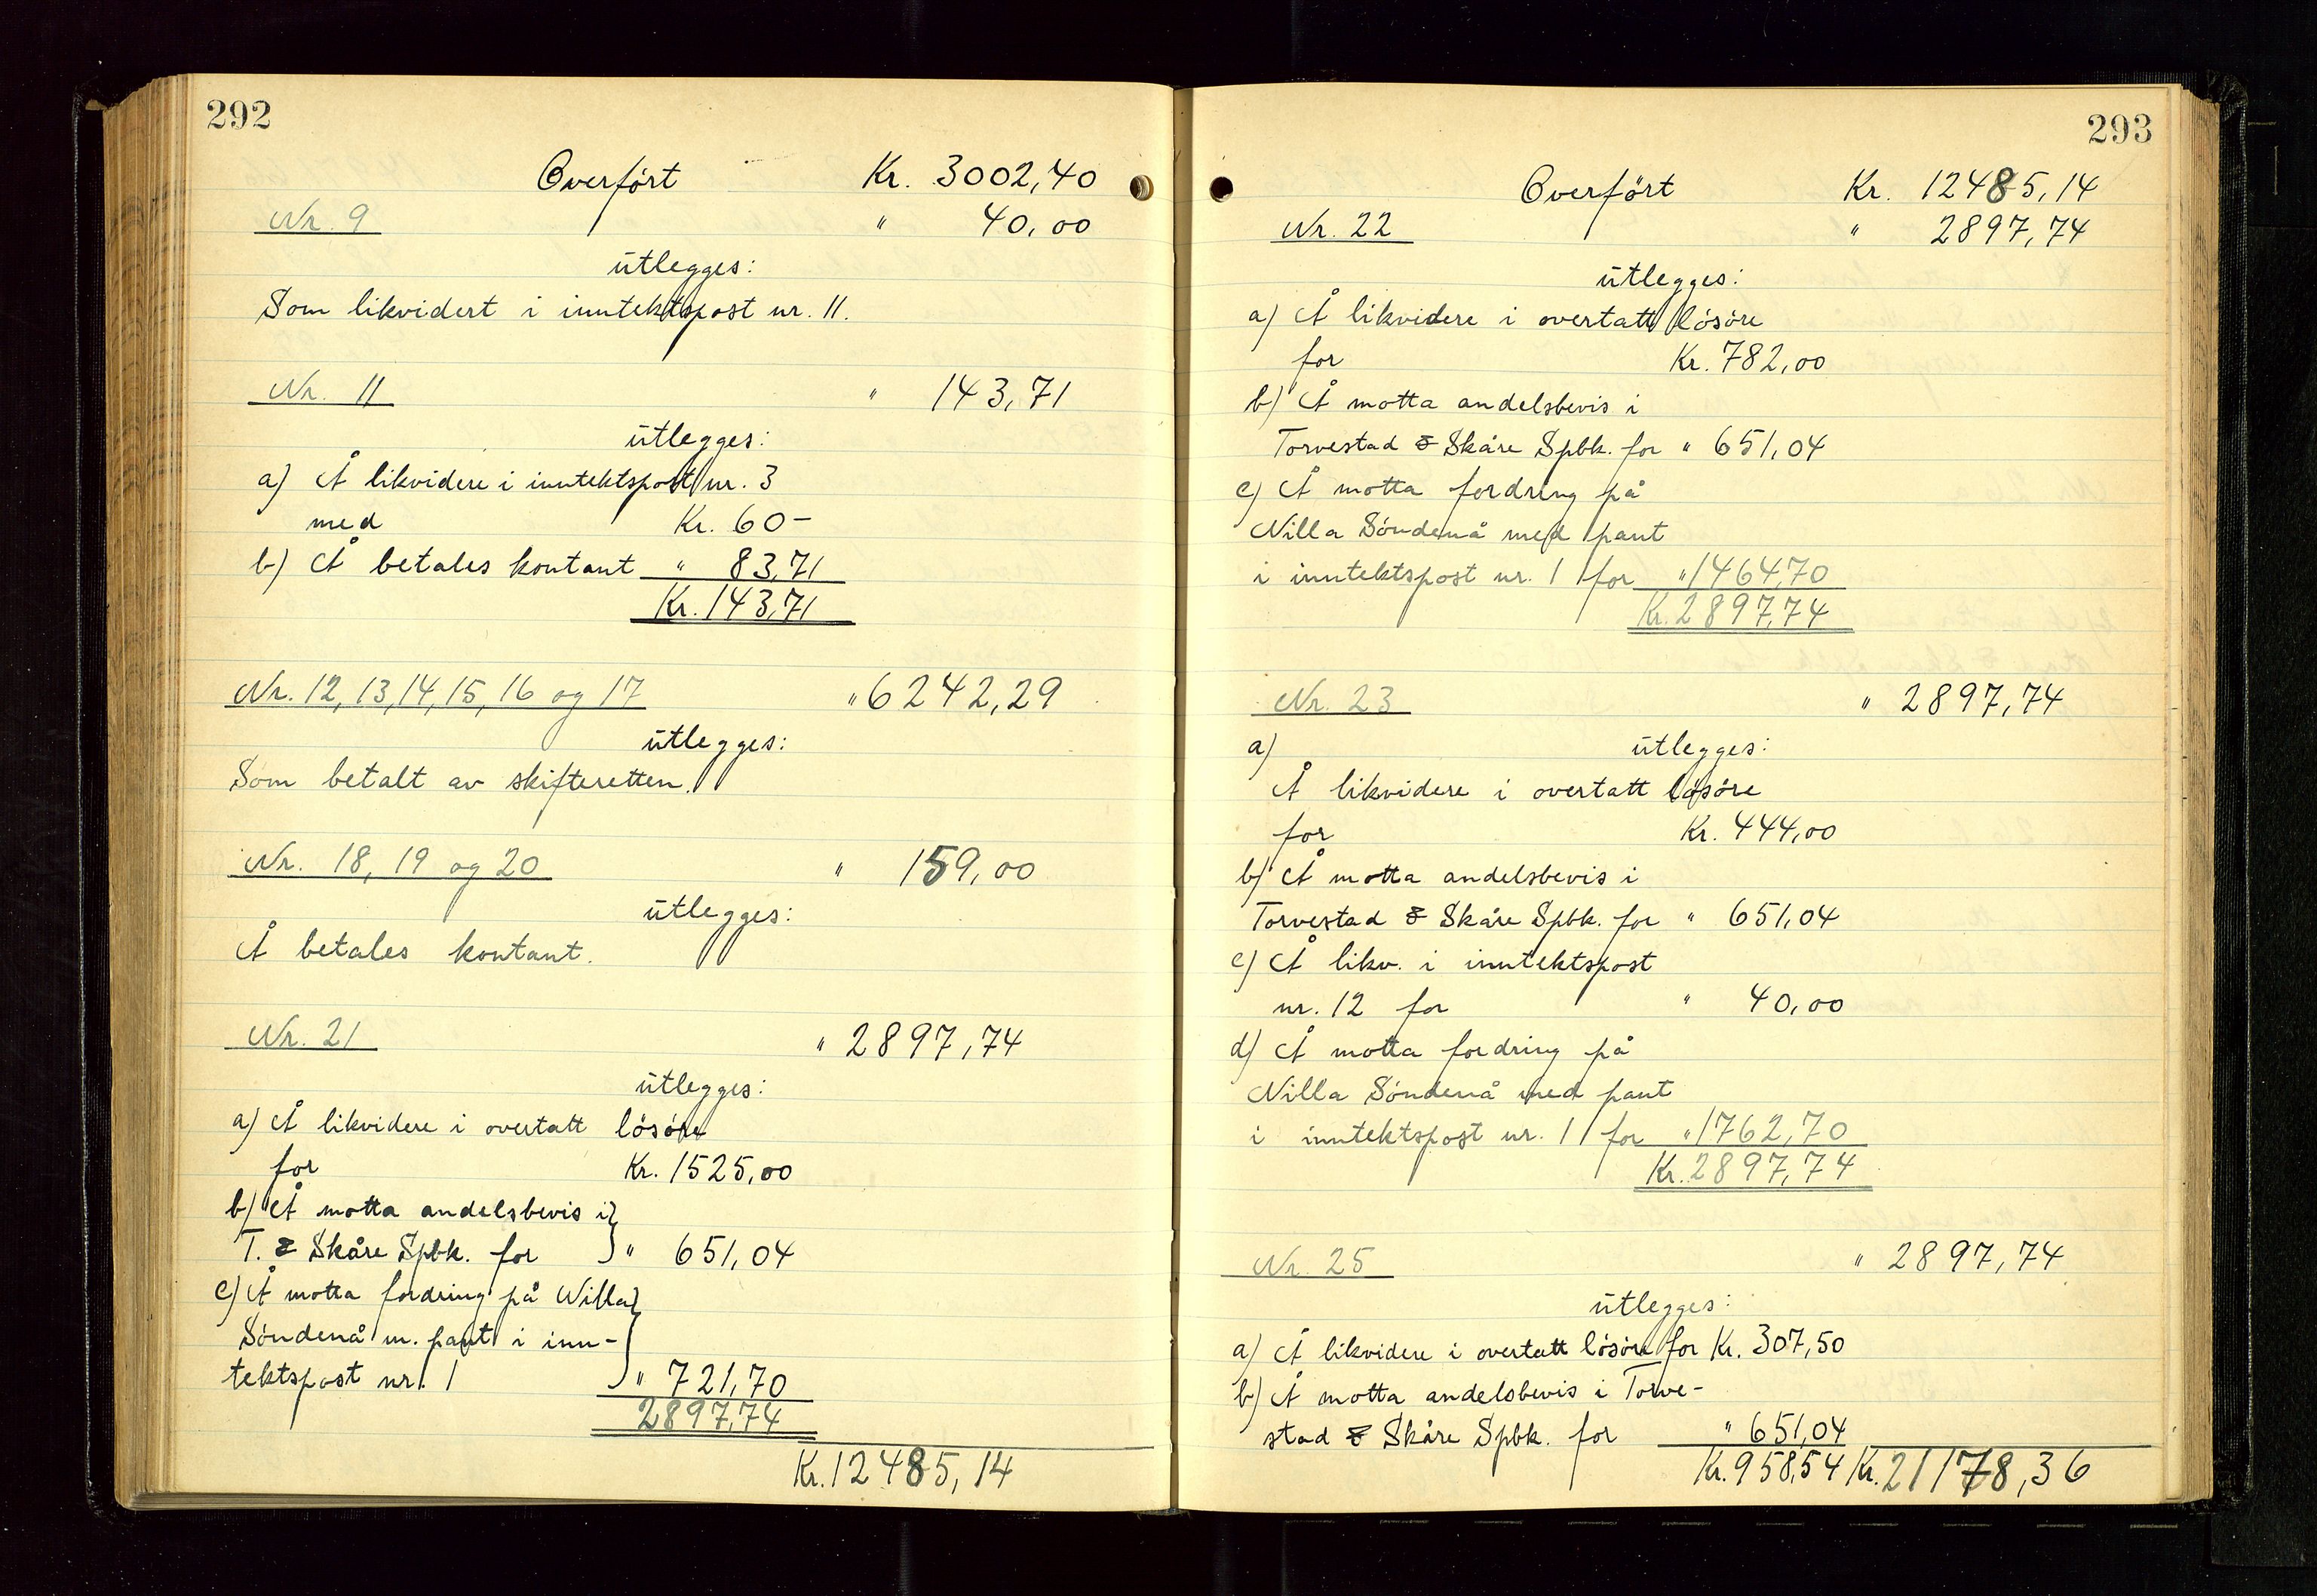 292
Overfört Kr. 3002,40
Nr. 9 " 40,00
utlegges:
Som likvidert i inntektspost nr. 11.
Nr. 11 " 143,71
utlegges:
a) Å likvidere i inntektspost nr. 3
med Kr. 60-
b) Å betales kontant " 83,71
Kr. 143,71
Nr. 12, 13, 14, 15, 16 og 17 " 6242,29
utlegges:
Som betalt av skifteretten.
Nr. 18, 19 og 20 " 159,00
utlegges:
Å betales kontant.
Nr. 21 " 2897,74
utlegges:
a) Å likvidere i overtatt lösöre
for Kr. 1525,00
b) Å motta andelsbevis i
T. & Skåre Spbk. for " 651,04
c) Å motta fordring på Nilla
Söndenå m. pant i inn-
tektspost nr. 1 " 721,70
2897,74
Kr. 12485,14
293
Overfört Kr. 12485,14
Nr. 22 " 2897,74
utlegges:
a) Å likvidere i overtatt lösöre
for Kr. 782,00
b) Å motta andelsbevis i
Torvestad & Skåre Spbk. for " 651,04
c) Å motta fordring på
Nilla Söndenå med pant
i inntektspost nr. 1 for " 1464,70
Kr. 2897,74
Nr. 23 " 2897,74
a) utlegges:
Å likvidere i overtatt lösöre
for Kr. 444,00
b) Å motta andelsbevis i
Torvestad & Skåre Spbk. for " 651,04
c) Å likv. i inntektspost
nr. 12 for " 40,00
d) Å motta fordring på
Nilla Söndenå med pant
i inntektspost nr. 1 for " 1762,70
Kr. 2897,74
Nr. 25 " 2897,74
utlegges:
a) Å likvidere i overtatt lösöre for Kr. 307,50
b) Å motta andelsbevis i Torve-
stad & Skåre Spbk. for " 651,04
Kr. 958,54 Kr. 21178,36